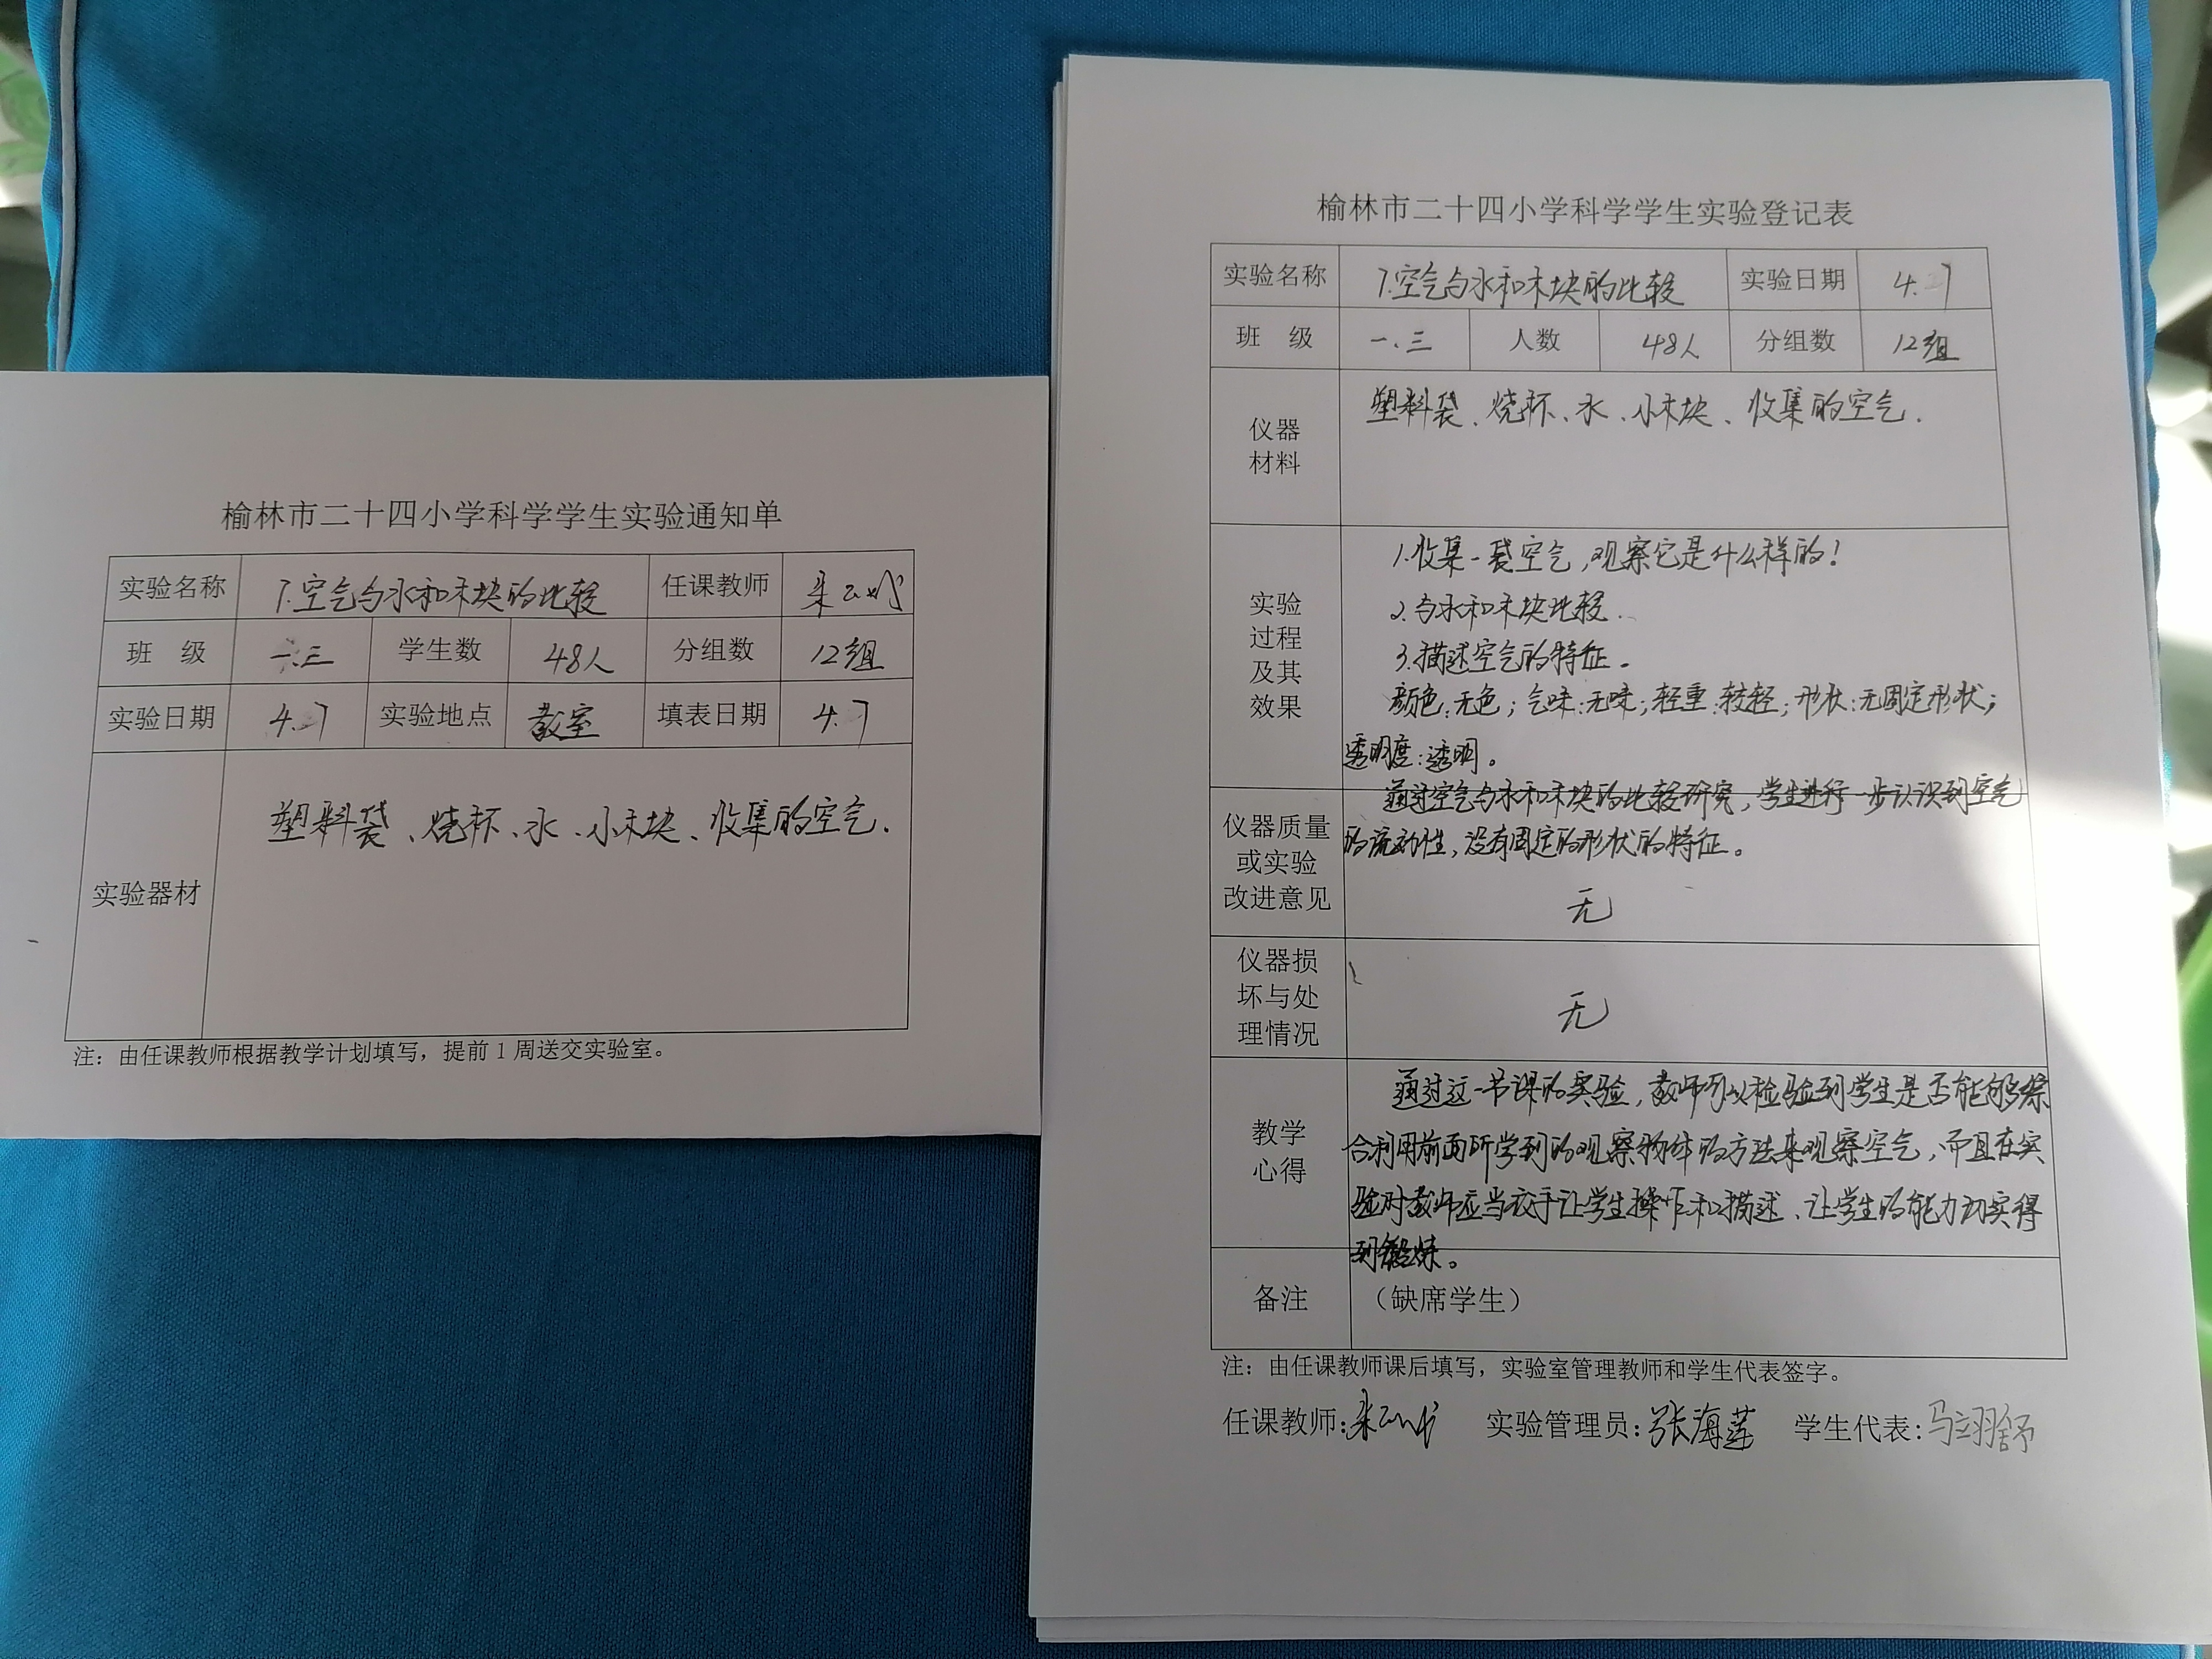 榆林市二十四小学科学学生实验通知单
实验名称 7.空气与水和木块的比较 任课教师
班 级 一.三 学生数 48人 分组数 12组
实验日期 4. 实验地点 教室 填表日期 4.
实验器材 塑料袋、烧杯、水、小木块、收集的空气.
注：由任课教师根据教学计划填写，提前1周送交实验室。
榆林市二十四小学科学学生实验登记表
实验名称 7.空气与水和木块的比较 实验日期 4.
班 级 一.三 人数 48人 分组数 12组
仪器
材料
塑料袋、烧杯、水、小木块、收集的空气.
实验
过程
及其
效果
1.收集一袋空气,观察它是什么样的!
2.与水和木块比较.
3.描述空气的特征。
颜色:无色;气味:无味;轻重:较轻;形状:无固定形状;
透明度:透明。
通过空气与水和木块的比较研究,学生进行一步认识到空气
的流动性,没有固定的形状的特征。
仪器质量
或实验
改进意见
无
仪器损
坏与处
理情况
无
教学
心得
通过这一节课的实验,教师可以检验到学生是否能够综
合利用前面所学到的观察物体的方法来观察空气,而且在实
验时教师应当放手让学生操作和描述、让学生的能力切实得
到锻炼。
备注 （缺席学生）
注：由任课教师课后填写，实验室管理教师和学生代表签字。
任课教师: 实验管理员:张海莲 学生代表:马翊舒